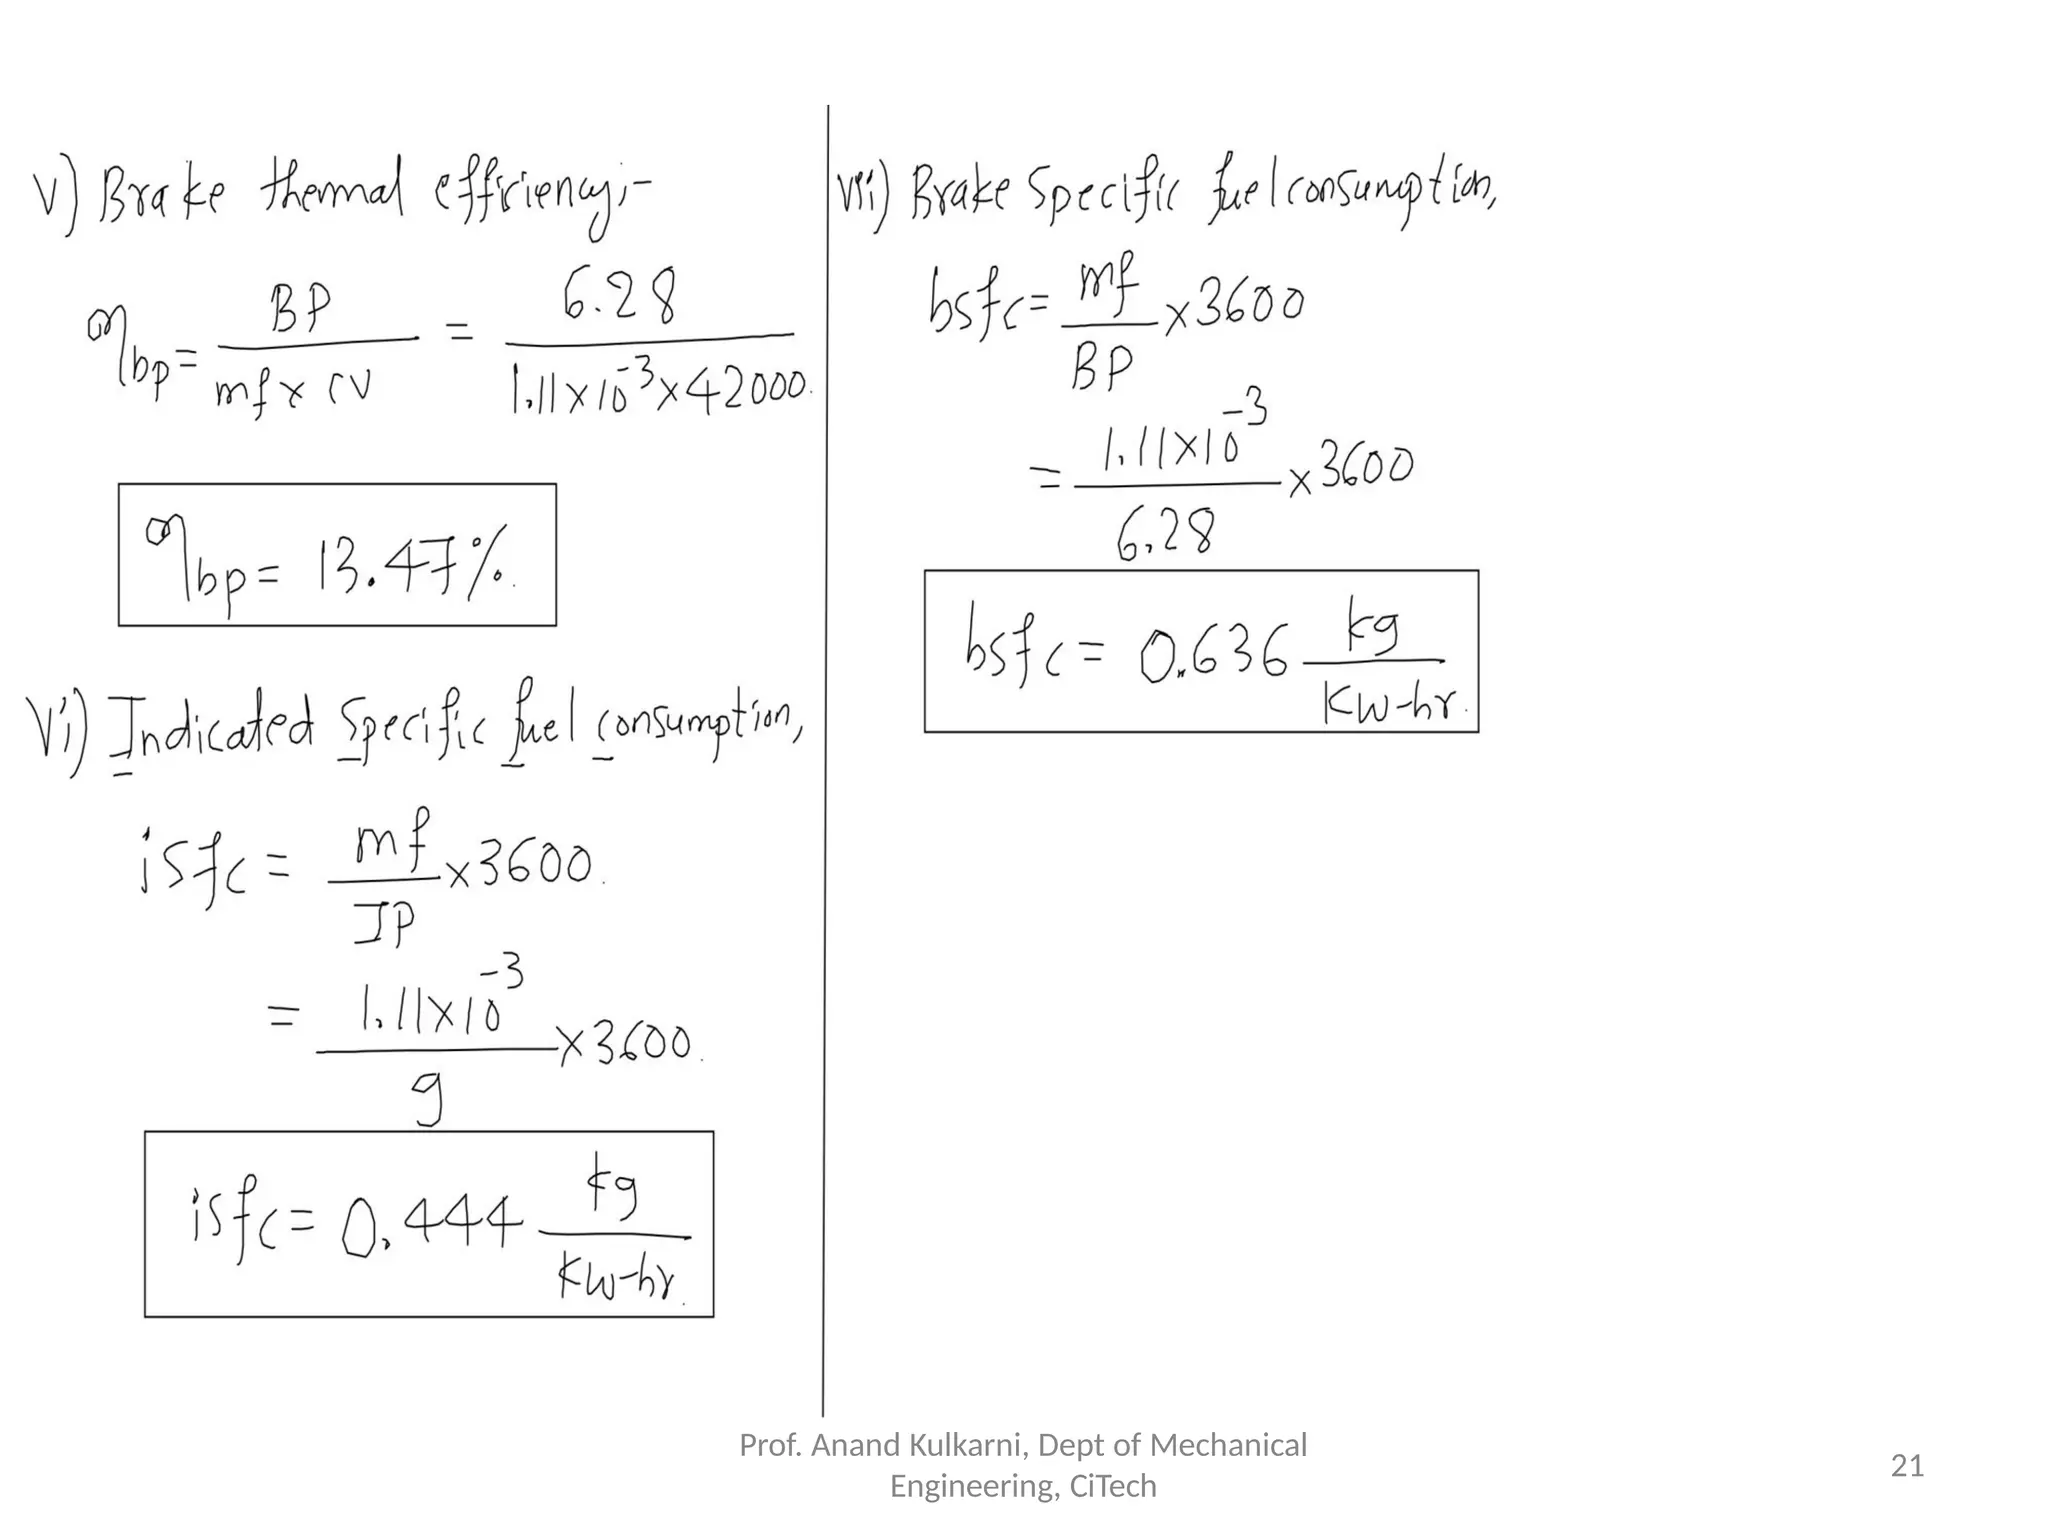 v) Brake thermal efficiency:-
η bp = BP / mf x CV = 6.28 / 1.11 x 10^-3 x 42000.
η bp = 13.47%.
vi) Indicated Specific fuel consumption,
isfc = mf / IP x 3600.
= 1.11 x 10^-3 / 9 x 3600.
isfc = 0.444 kg / KW-hr.
vii) Brake Specific fuel consumption,
bsfc = mf / BP x 3600
= 1.11 x 10^-3 / 6.28 x 3600
bsfc = 0.636 kg / KW-hr.
Prof. Anand Kulkarni, Dept of Mechanical
Engineering, CiTech
21